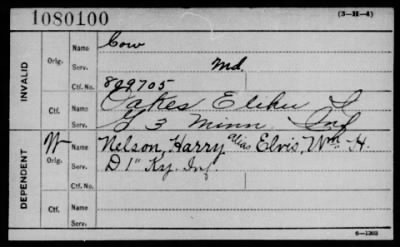 1080100 (3—H—4)
INVALID
Orig. Name Cow
Serv. Md.
Ctf. No. 829705
Ctf. Name Oakes Elihu
Serv. G 3 Minn Inf
DEPENDENT
W
Orig. Name Nelson, Harry alias Elvis, Wm H.
Serv. D 1" Ky. Inf.
Ctf. No.
Ctf. Name
Serv.